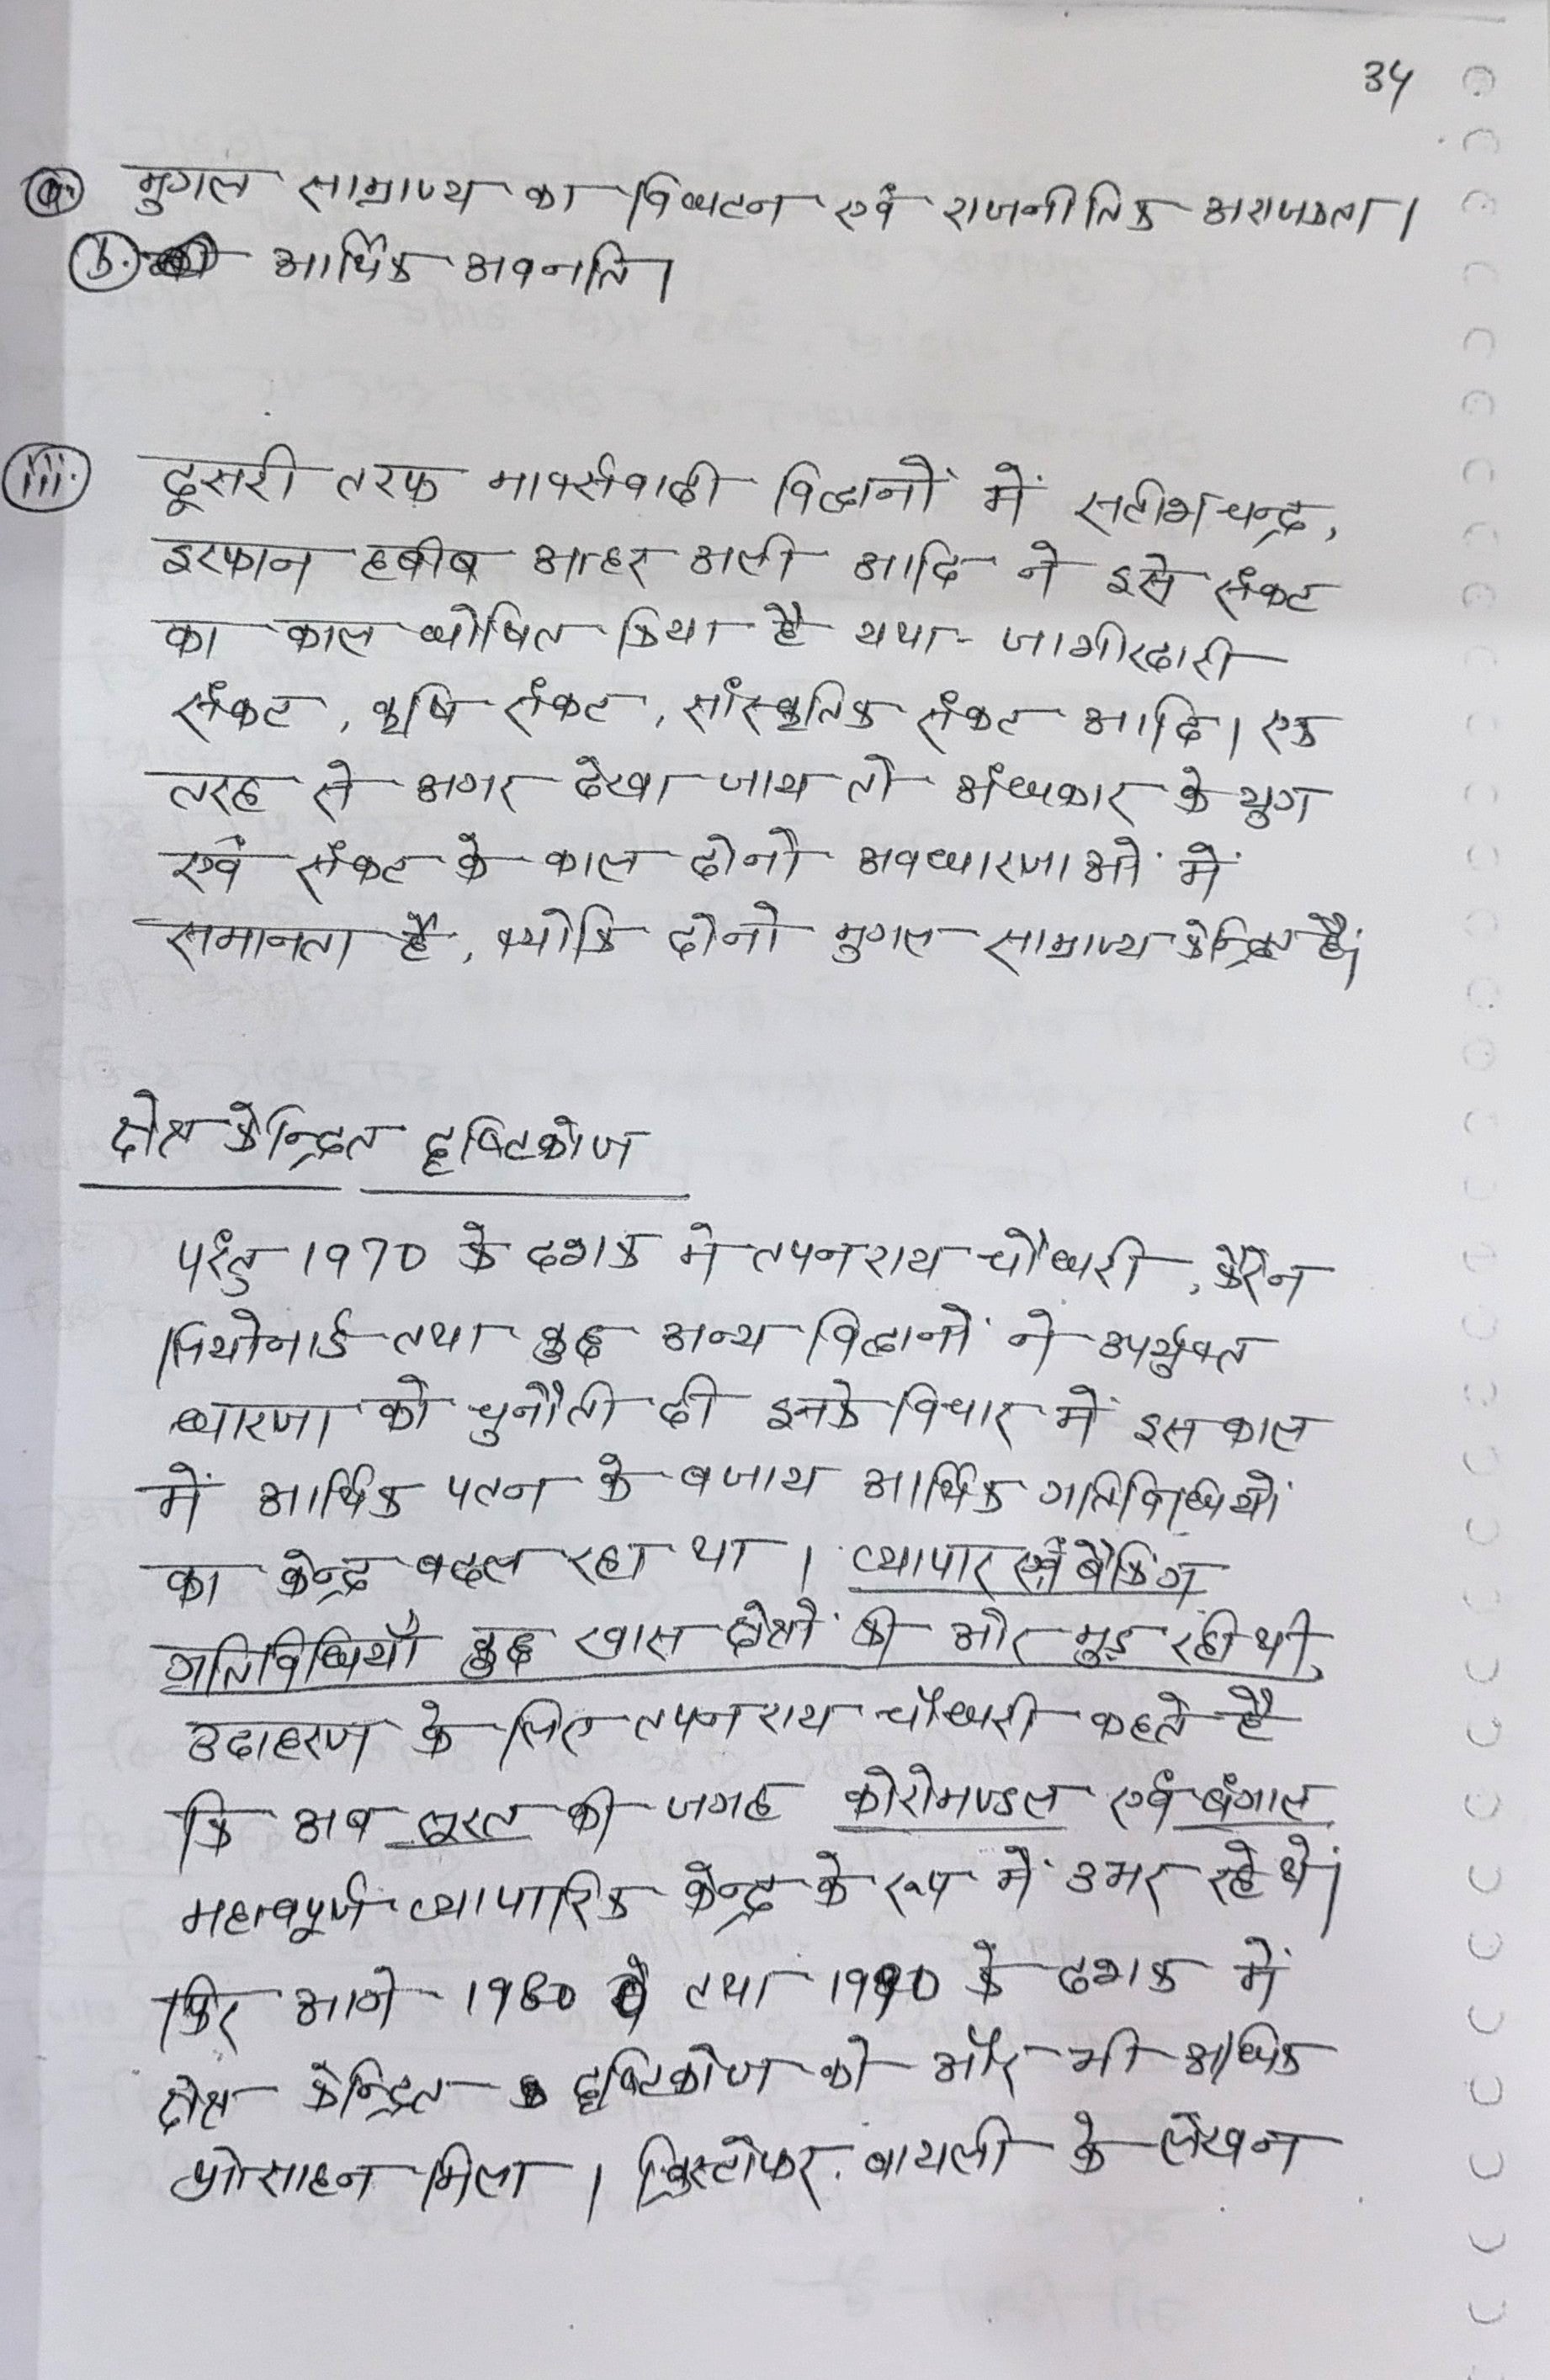 34
(a.) मुगल साम्राज्य का विघटन एवं राजनीतिक अराजकता।
(b.) आर्थिक अवनति।
(iii.) दूसरी तरफ मार्क्सवादी विद्वानों में सतीश चन्द्र,
इरफान हबीब आहर अली आदि ने इसे संकट
का काल घोषित किया है यथा- जागीरदारी
संकट, कृषि संकट, सांस्कृतिक संकट आदि। एक
तरह से अगर देखा जाय तो अंधकार के युग
एवं संकट के काल दोनों अवधारणाओं में
समानता है, क्योंकि दोनों मुगल साम्राज्य केन्द्रित हैं।
क्षेत्र केन्द्रित दृष्टिकोण
परंतु 1970 के दशक में तपन राय चौधरी, कैरेन
लियोनार्ड तथा कुछ अन्य विद्वानों ने उपर्युक्त
धारणा को चुनौती दी इनके विचार में इस काल
में आर्थिक पतन के बजाय आर्थिक गतिविधियों
का केन्द्र बदल रहा था। व्यापार एवं बैंकिंग
गतिविधियाँ कुछ खास क्षेत्रों की ओर मुड़ रही थी,
उदाहरण के लिए तपन राय चौधरी कहते है
कि अब सूरत की जगह कोरोमण्डल एवं बंगाल
महत्वपूर्ण व्यापारिक केन्द्र के रूप में उभर रहे थे।
फिर आगे 1980 तथा 1990 के दशक में
क्षेत्र केन्द्रित दृष्टिकोण को और भी अधिक
प्रोत्साहन मिला। क्रिस्टोफर. बायली के लेखन